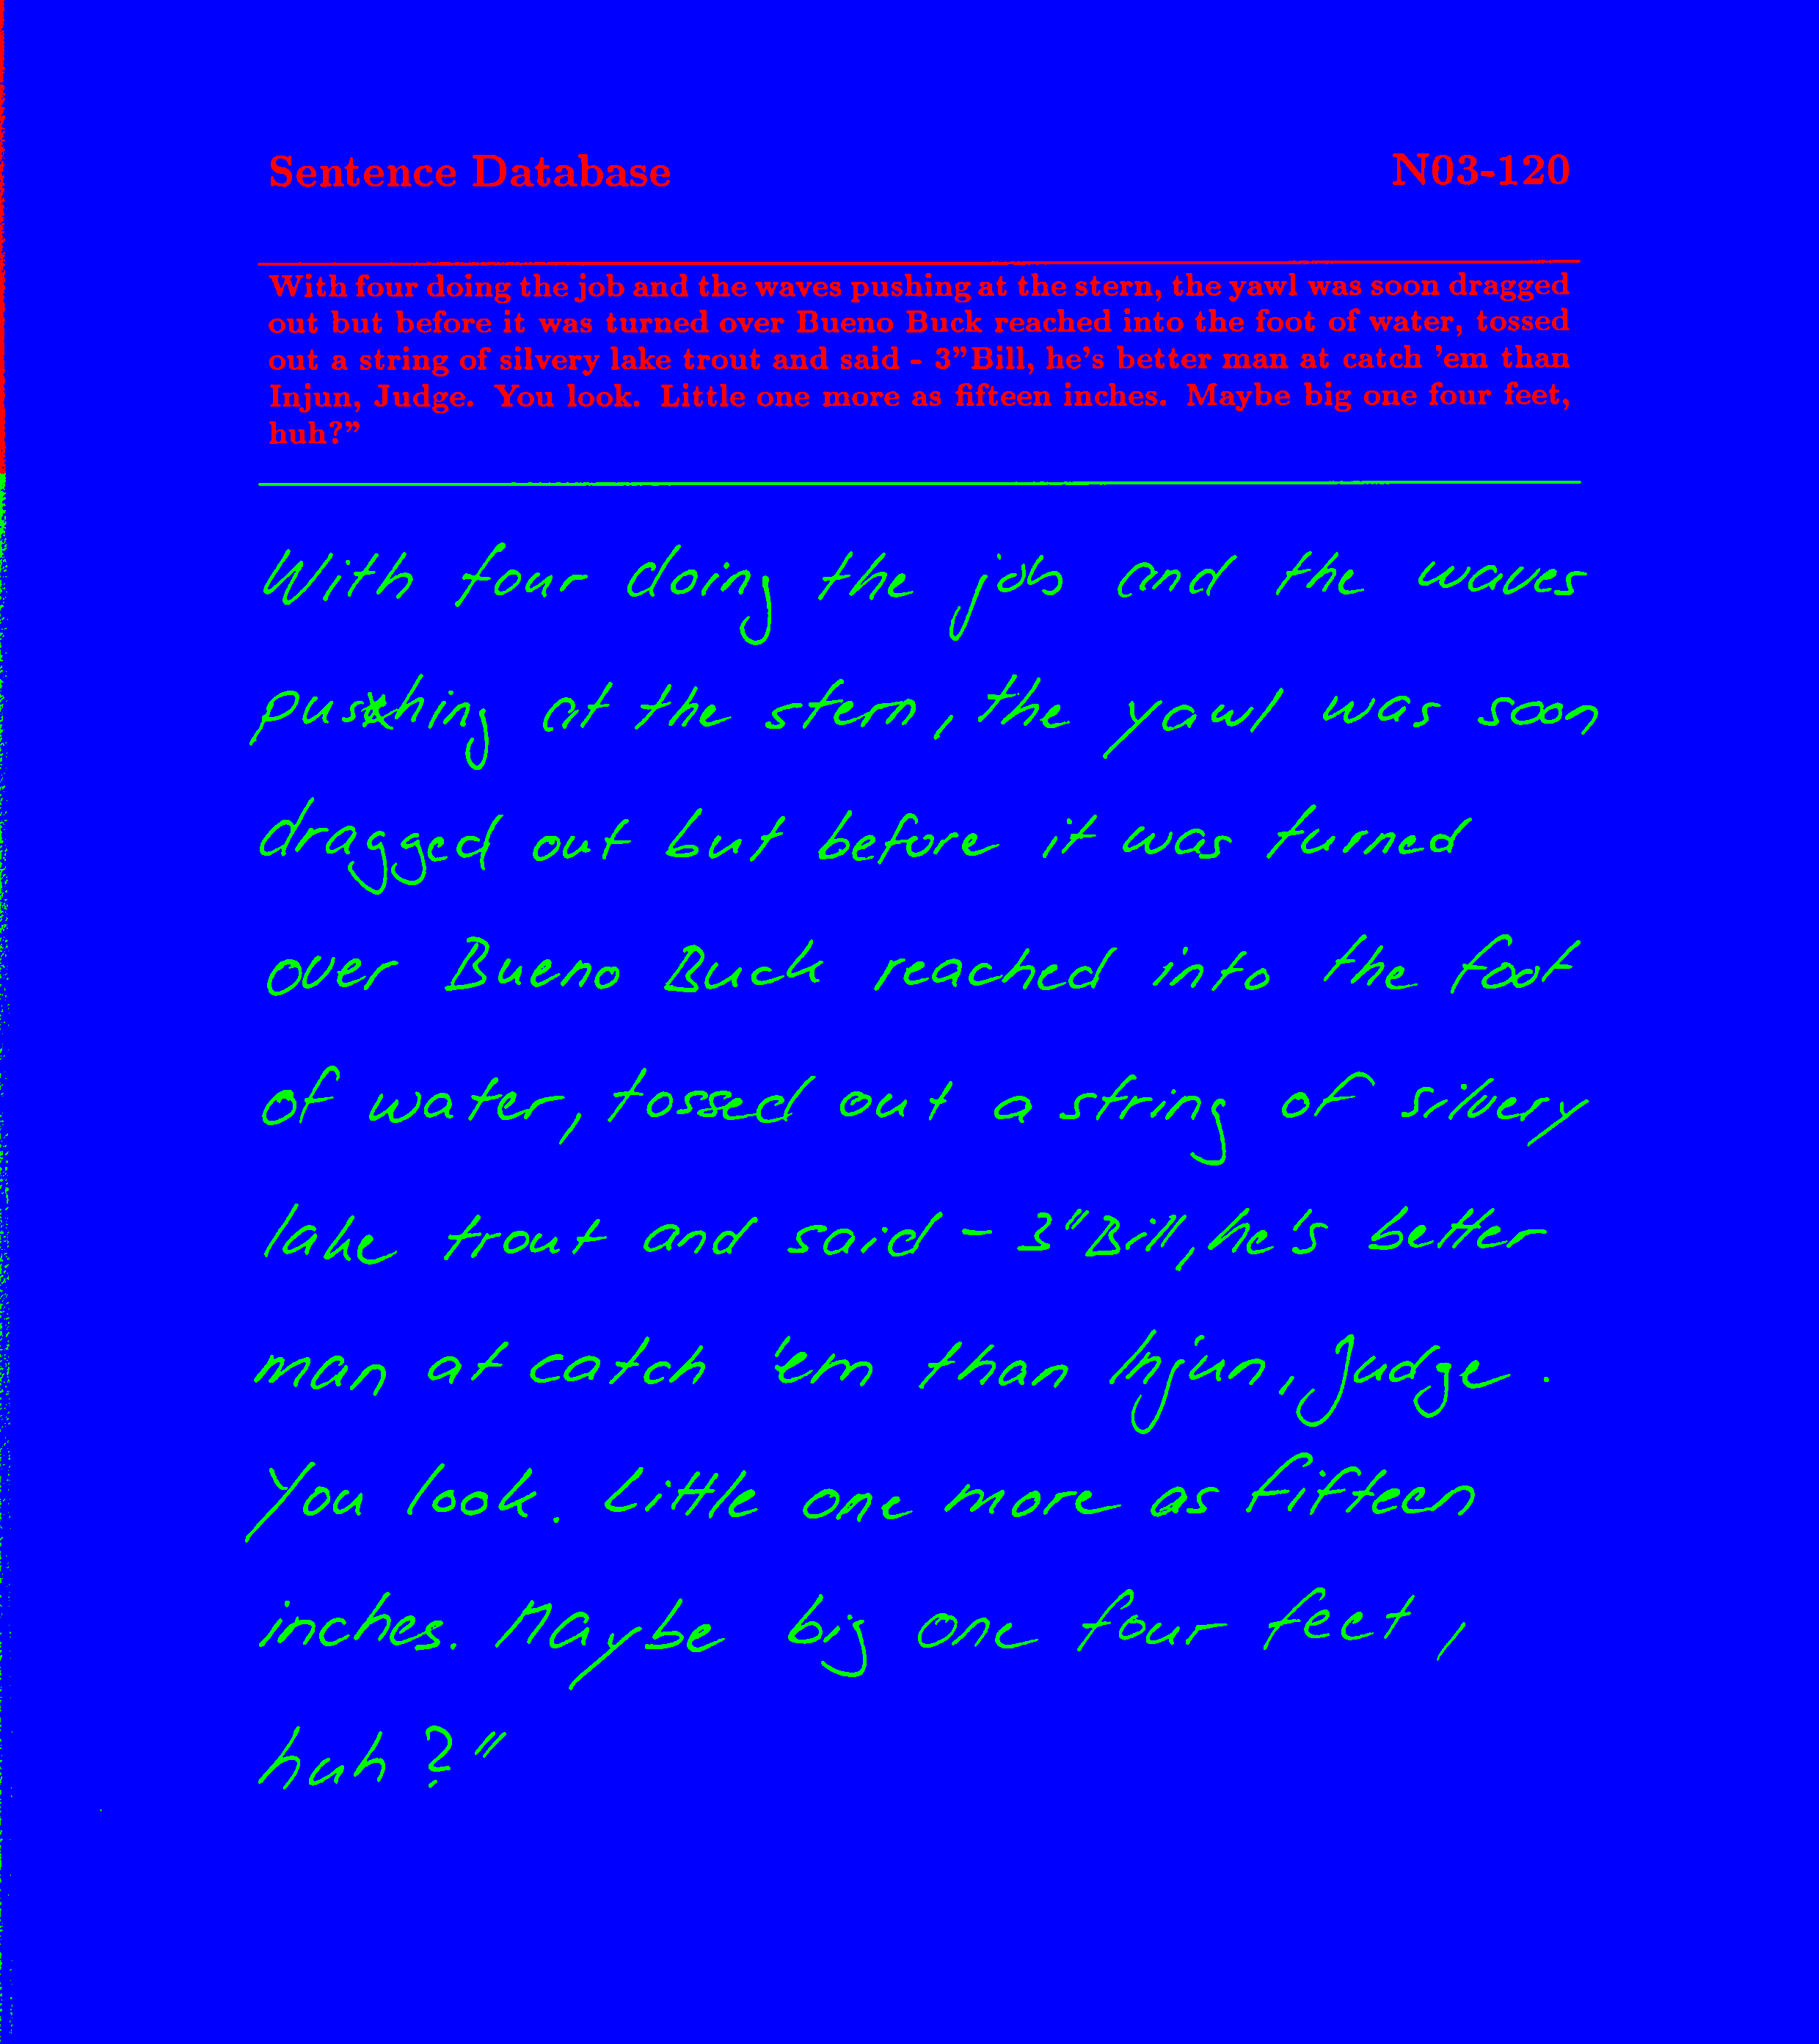 Sentence Database N03-120
With four doing the job and the waves pushing at the stern, the yawl was soon dragged
out but before it was turned over Bueno Buck reached into the foot of water, tossed
out a string of silvery lake trout and said - 3"Bill, he's better man at catch 'em than
Injun, Judge. You look. Little one more as fifteen inches. Maybe big one four feet,
huh?"
With four doing the job and the waves
pushing at the stern, the yawl was soon
dragged out but before it was turned
over Bueno Buck reached into the foot
of water, tossed out a string of silvery
lake trout and said - 3"Bill, he's better
man at catch 'em than Injun, Judge.
You look. Little one more as fifteen
inches. Maybe big one four feet,
huh?"